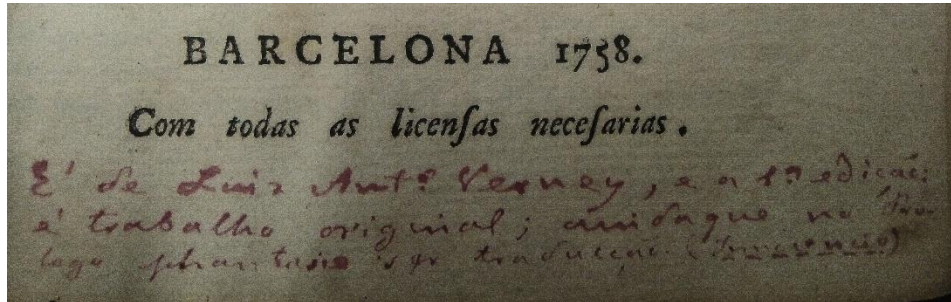 BARCELONA 1758.
Com todas as licenſas neceſarias.
E' de Luiz Antº Verney, e a 1ª edição;
é trabalho original; aindaque no Pro-
logo phantasie ser traducção. (Innocencio)